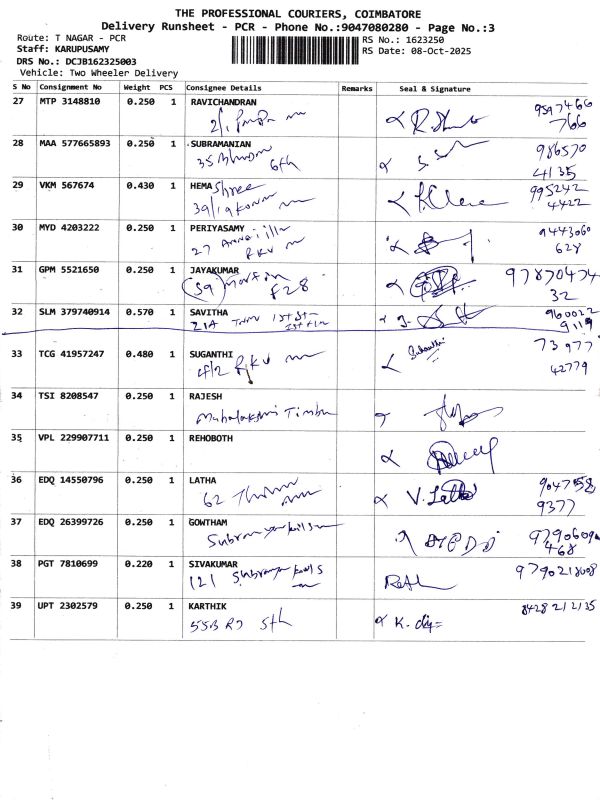 THE PROFESSIONAL COURIERS, COIMBATORE
Delivery Runsheet - PCR - Phone No.:9047080280 - Page No.:3
Route: T NAGAR - PCR
RS No.: 1623250
Staff: KARUPUSAMY
RS Date: 08-Oct-2025
DRS No.: DCJB162325003
Vehicle: Two Wheeler Delivery
S No Consignment No Weight PCS Consignee Details Remarks Seal & Signature
27 MTP 3148810 0.250 1 RAVICHANDRAN
9597466
766
28 MAA 577665893 0.250 1 SUBRAMANIAN
35 6th
986570
4135
29 VKM 567674 0.430 1 HEMA Shree
39/19
995242
4422
30 MYD 4203222 0.250 1 PERIYASAMY
27 RKV
9443060
628
31 GPM 5521650 0.250 1 JAYAKUMAR
(59) F28
97870474
32
32 SLM 379740914 0.570 1 SAVITHA
21A 1st St
960022
9119
33 TCG 41957247 0.480 1 SUGANTHI
4/2 RKV
Suganthi
73977
42779
34 TSI 8208547 0.250 1 RAJESH
Mahalakshmi Timber
35 VPL 229907711 0.250 1 REHOBOTH
36 EDQ 14550796 0.250 1 LATHA
62
V. Latha
9047758
9377
37 EDQ 26399726 0.250 1 GOWTHAM
9790609
468
38 PGT 7810699 0.220 1 SIVAKUMAR
121
9790218008
39 UPT 2302579 0.250 1 KARTHIK
55B RJ 5th
K.
8428212135